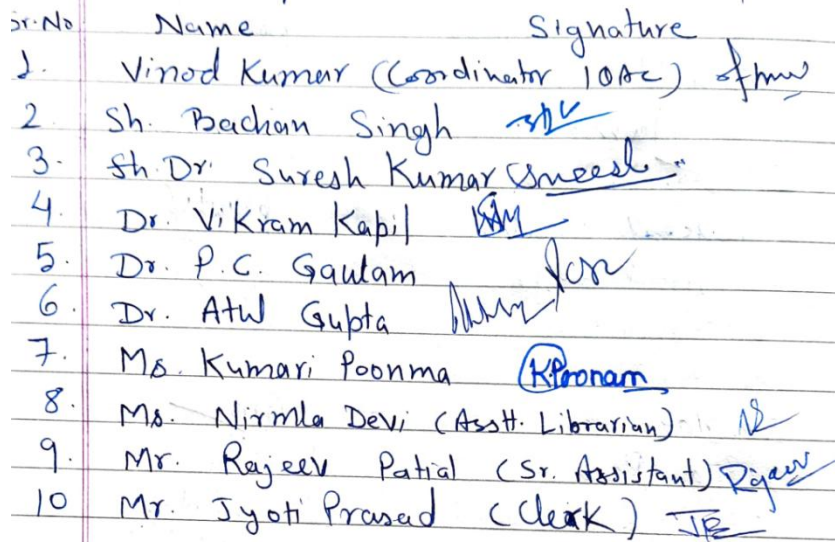 Sr. No Name Signature
1. Vinod Kumar (Coordinator IQAC)
2 Sh. Bachan Singh
3. Sh. Dr. Suresh Kumar Sureesh
4. Dr. Vikram Kapil
5. Dr. P.C. Gautam
6. Dr. Atul Gupta
7. Ms. Kumari Poonma K.Poonam
8. Ms. Nirmla Devi (Asstt. Librarian)
9. Mr. Rajeev Patial (Sr. Assistant) Rajeev
10 Mr. Jyoti Prasad (Clerk) JP